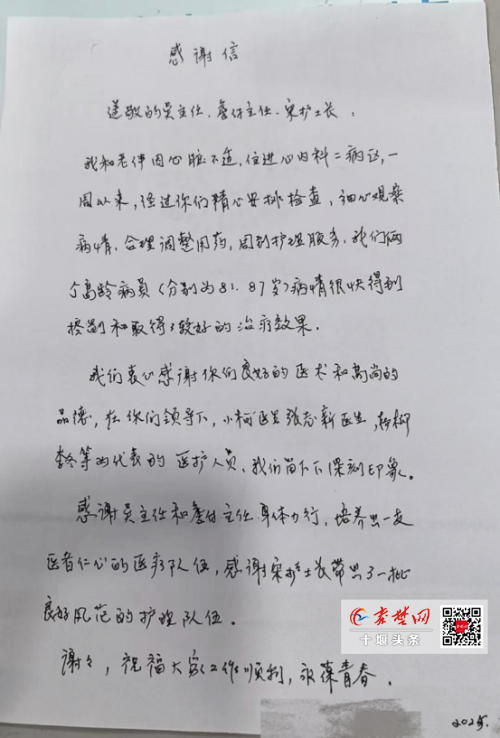 感谢信
尊敬的吴主任、詹付主任、宋护士长：
我和老伴因心脏不适，住进心内科二病区，一
周以来，经过你们精心安排检查，细心观察
病情，合理调整用药，周到护理服务，我们俩
个高龄病员（分别为81、87岁）病情很快得到
控制和取得了较好的治疗效果。
我们衷心感谢你们良好的医术和高尚的
品德，在你们领导下，小柯医生张志新医生，韩柳
李冬等为代表的医护人员、我们留下了深刻印象。
感谢吴主任和詹付主任身体力行，培养出一支
医者仁心的医疗队伍，感谢宋护士长带出了一批
良好风范的护理队伍。
谢谢，祝福大家工作顺利，永葆青春。
秦楚网
十堰头条
2025.